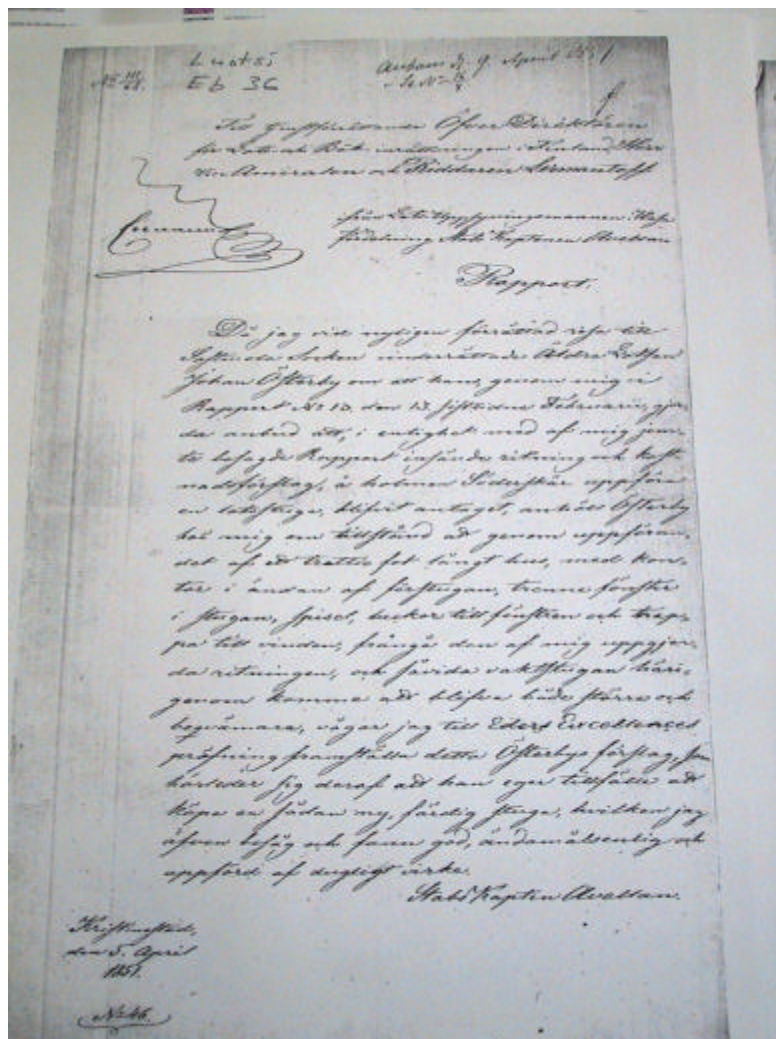 Luotsi
Eb 36
Ankom d. 9 April 1851
Till Högtförordnande Öfver Direktören
för Lots och Båk inrättningen i Finland, Herr
Vice Amiralen och Riddaren
från Lots Uppsyningsmannen i Wasa
fördelning Stabs Kaptenen Avellan
Rapport.
Då jag vid nyligen förrättad resa till
Socken underrättade Äldre Lotsen
Johan Österby om att hans, genom mig i
Rapport No 13, den 13 sistlidne Februarii, gjor-
da anbud att, i enlighet med af mig jem-
te berörde Rapport insände ritning och kost-
nadsförslag, å holmen Söderskär uppföra
en lotsstuga, blifvit antaget, anhöll Österby
hos mig om tillstånd att genom uppföran-
det af ett trettio fot långt hus, med kon-
tor i ändan af förstugan, trenne fönster
i stugan, spisel, luckor till fönstren och trap-
pa till vinden, frångå den af mig uppgjor-
da ritningen, och såvida vaktstugan häri-
genom komme att blifva både större och
beqvämare, vågar jag till Eders Excellences
pröfning framställa detta Österbys förslag, som
härleder sig deraf att han eger tillfälle att
köpa en sådan ny, färdig stuga, hvilken jag
äfven besåg och fann god, ändamålsenlig och
uppförd af dugligt virke.
Stabs Kapten Avellan.
Kristinestad,
den 5 April
1851.
No 46.